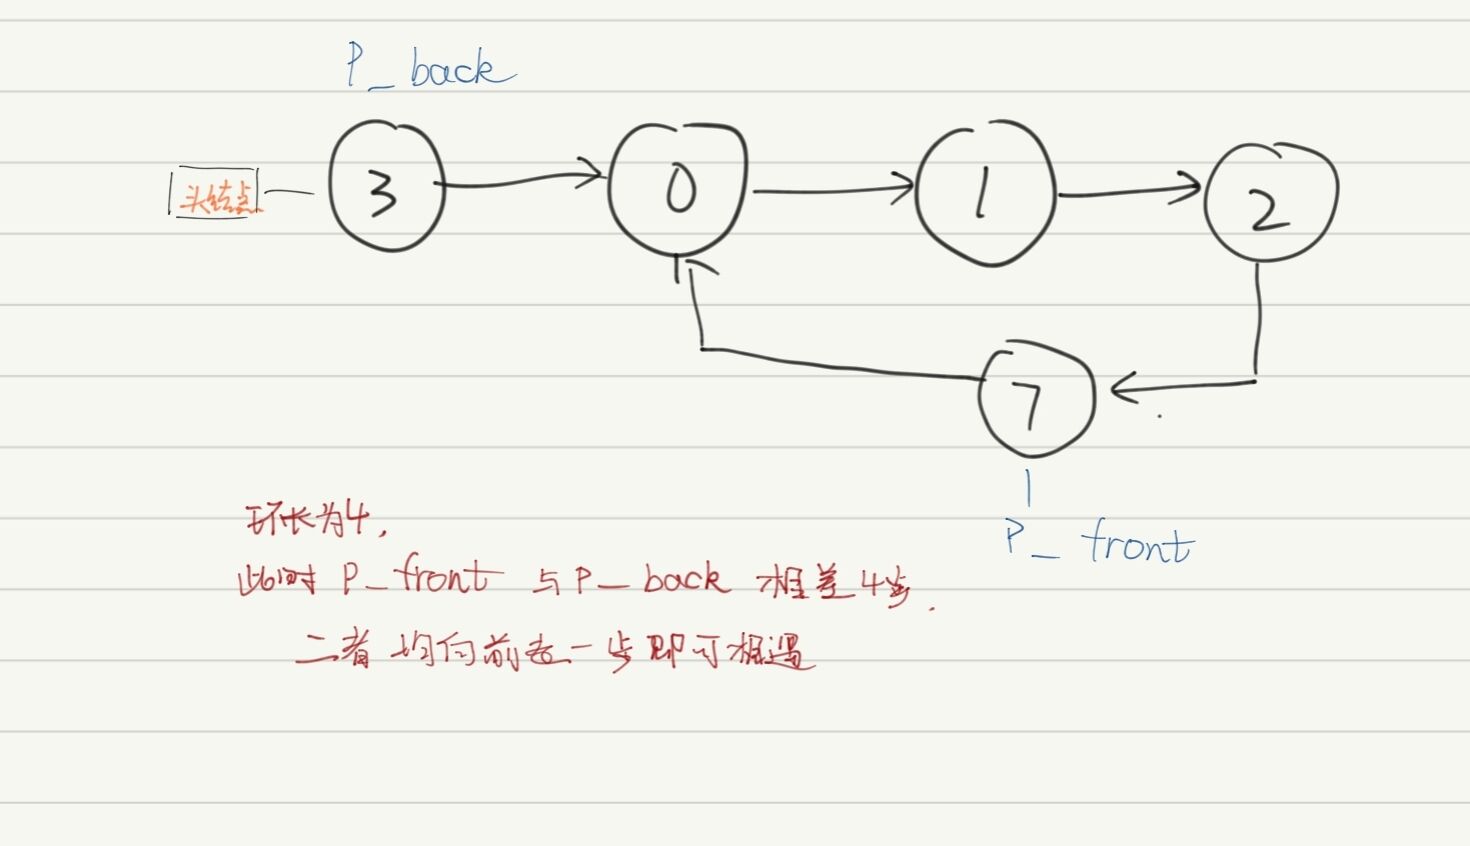 P_back
头结点
3
0
1
2
7
P_front
环长为4,
此时 P_front 与 P_back 相差4步.
二者均向前走一步即可相遇